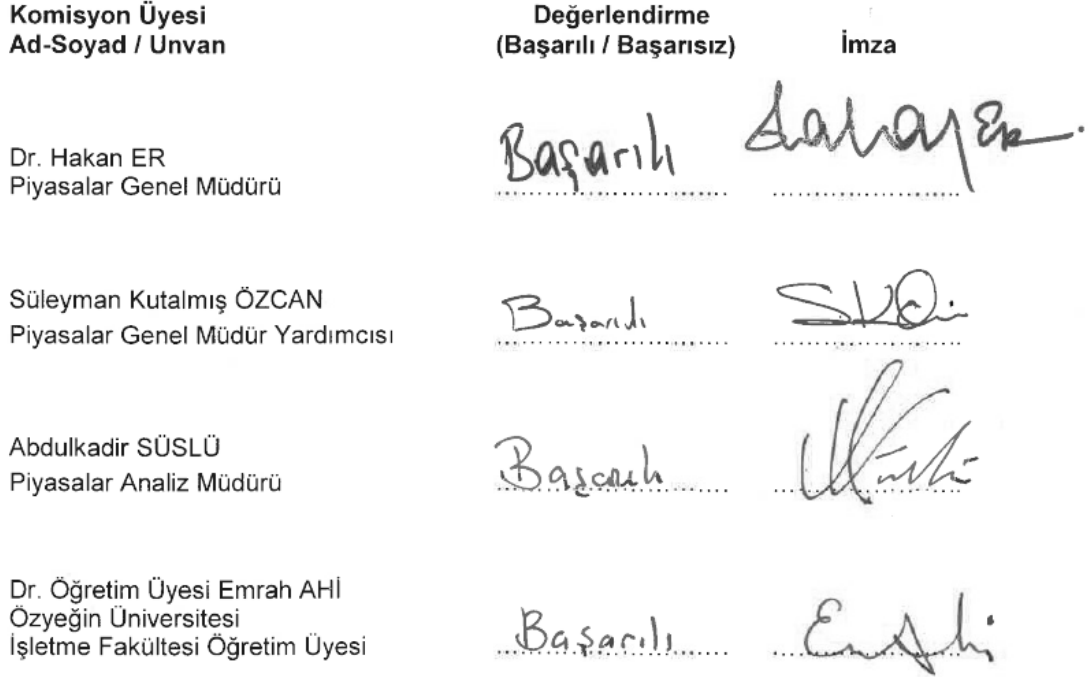 Komisyon Üyesi Değerlendirme
Ad-Soyad / Unvan (Başarılı / Başarısız) İmza
Dr. Hakan ER Başarılı
Piyasalar Genel Müdürü
Süleyman Kutalmış ÖZCAN Başarılı
Piyasalar Genel Müdür Yardımcısı
Abdulkadir SÜSLÜ
Piyasalar Analiz Müdürü Başarılı
Dr. Öğretim Üyesi Emrah AHİ
Özyeğin Üniversitesi
İşletme Fakültesi Öğretim Üyesi Başarılı